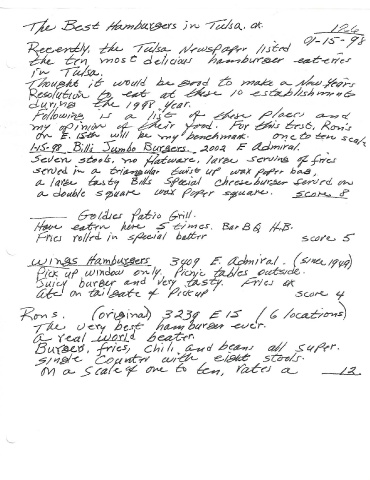 The Best Hamburgers in Tulsa. ok
01-15-98
Recently, the Tulsa Newspaper listed
the ten most delicious hamburger eateries
in Tulsa.
Thought it would be good to make a New Years
Resolution to eat at these 10 establishments
during the 1998 year.
Following is a list of these places and
my opinion of their food. For this test, Ron's
on E. 15th will be my benchmark. one to ten scale
Bills Jumbo Burgers. 2002 E Admiral.
Seven stools, no flatware, large serving of fries
served in a triangular twist up wax paper bag,
a large tasty Bills Special cheeseburger served on
a double square wax paper square. score 8
Goldies Patio Grill.
Have eaten here 5 times. Bar B Q H.B.
Fries rolled in special batter score 5
Wings Hamburgers 3409 E. Admiral. (since 1949)
Pick up window only. Picnic tables outside.
Juicy burger and very tasty. Fries ok
Ate on tailgate of Pickup score 4
Rons. (original) 3239 E 15 (6 locations)
The very best hamburger ever.
a real world beater.
Burgers, fries, chili, and beans all super.
single counter with eight stools.
on a scale of one to ten, rates a 12.